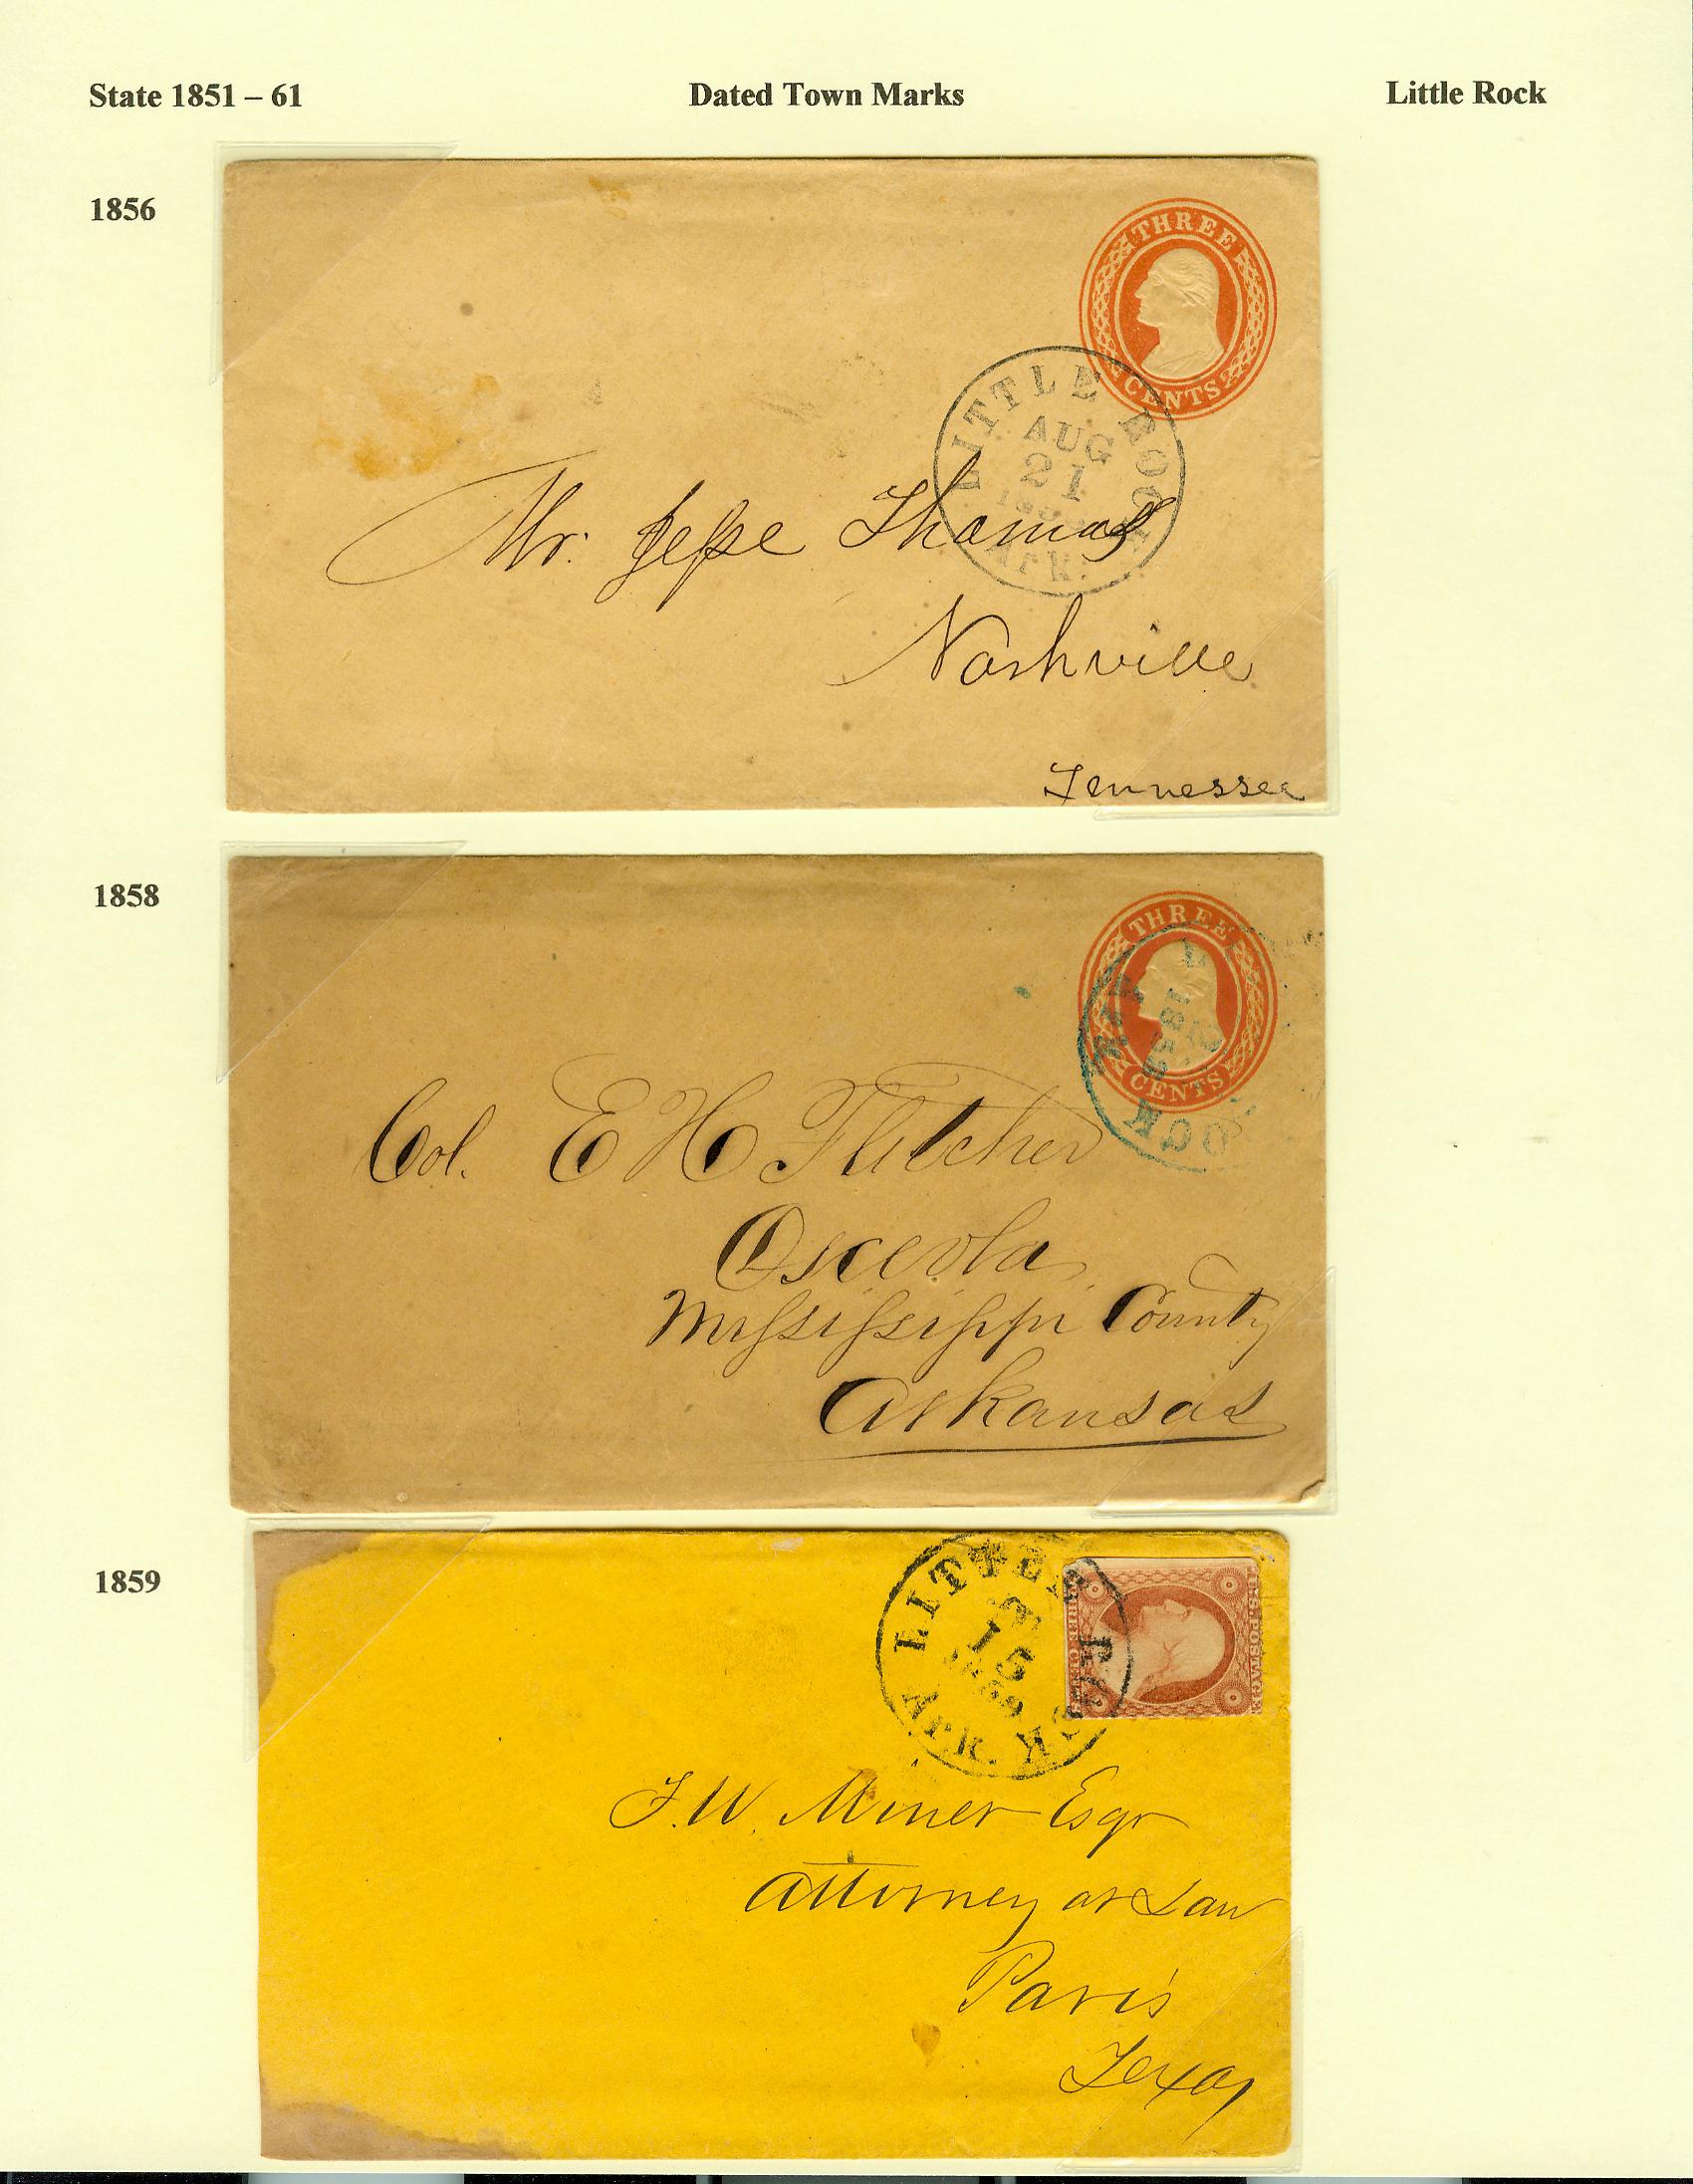 State 1851 – 61 Dated Town Marks Little Rock
1856
THREE
CENTS
LITTLE ROCK
AUG
21
Ark.
Mr. Jesse Thomas
Nashville
Tennessee
1858
THREE
CENTS
OCK
1858
Col. E H Fletcher
Osceola
Mississippi County
Arkansas
1859
LITTLE ROCK
15
1859
Ark.
U.S. POSTAGE
THREE CENTS
F. W. Miner Esqr
Attorney at Law
Paris
Texas